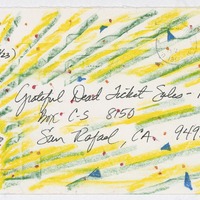 /23)
Grateful Dead Ticket Sales -
MC C-S 8150
San Rafael, CA. 949